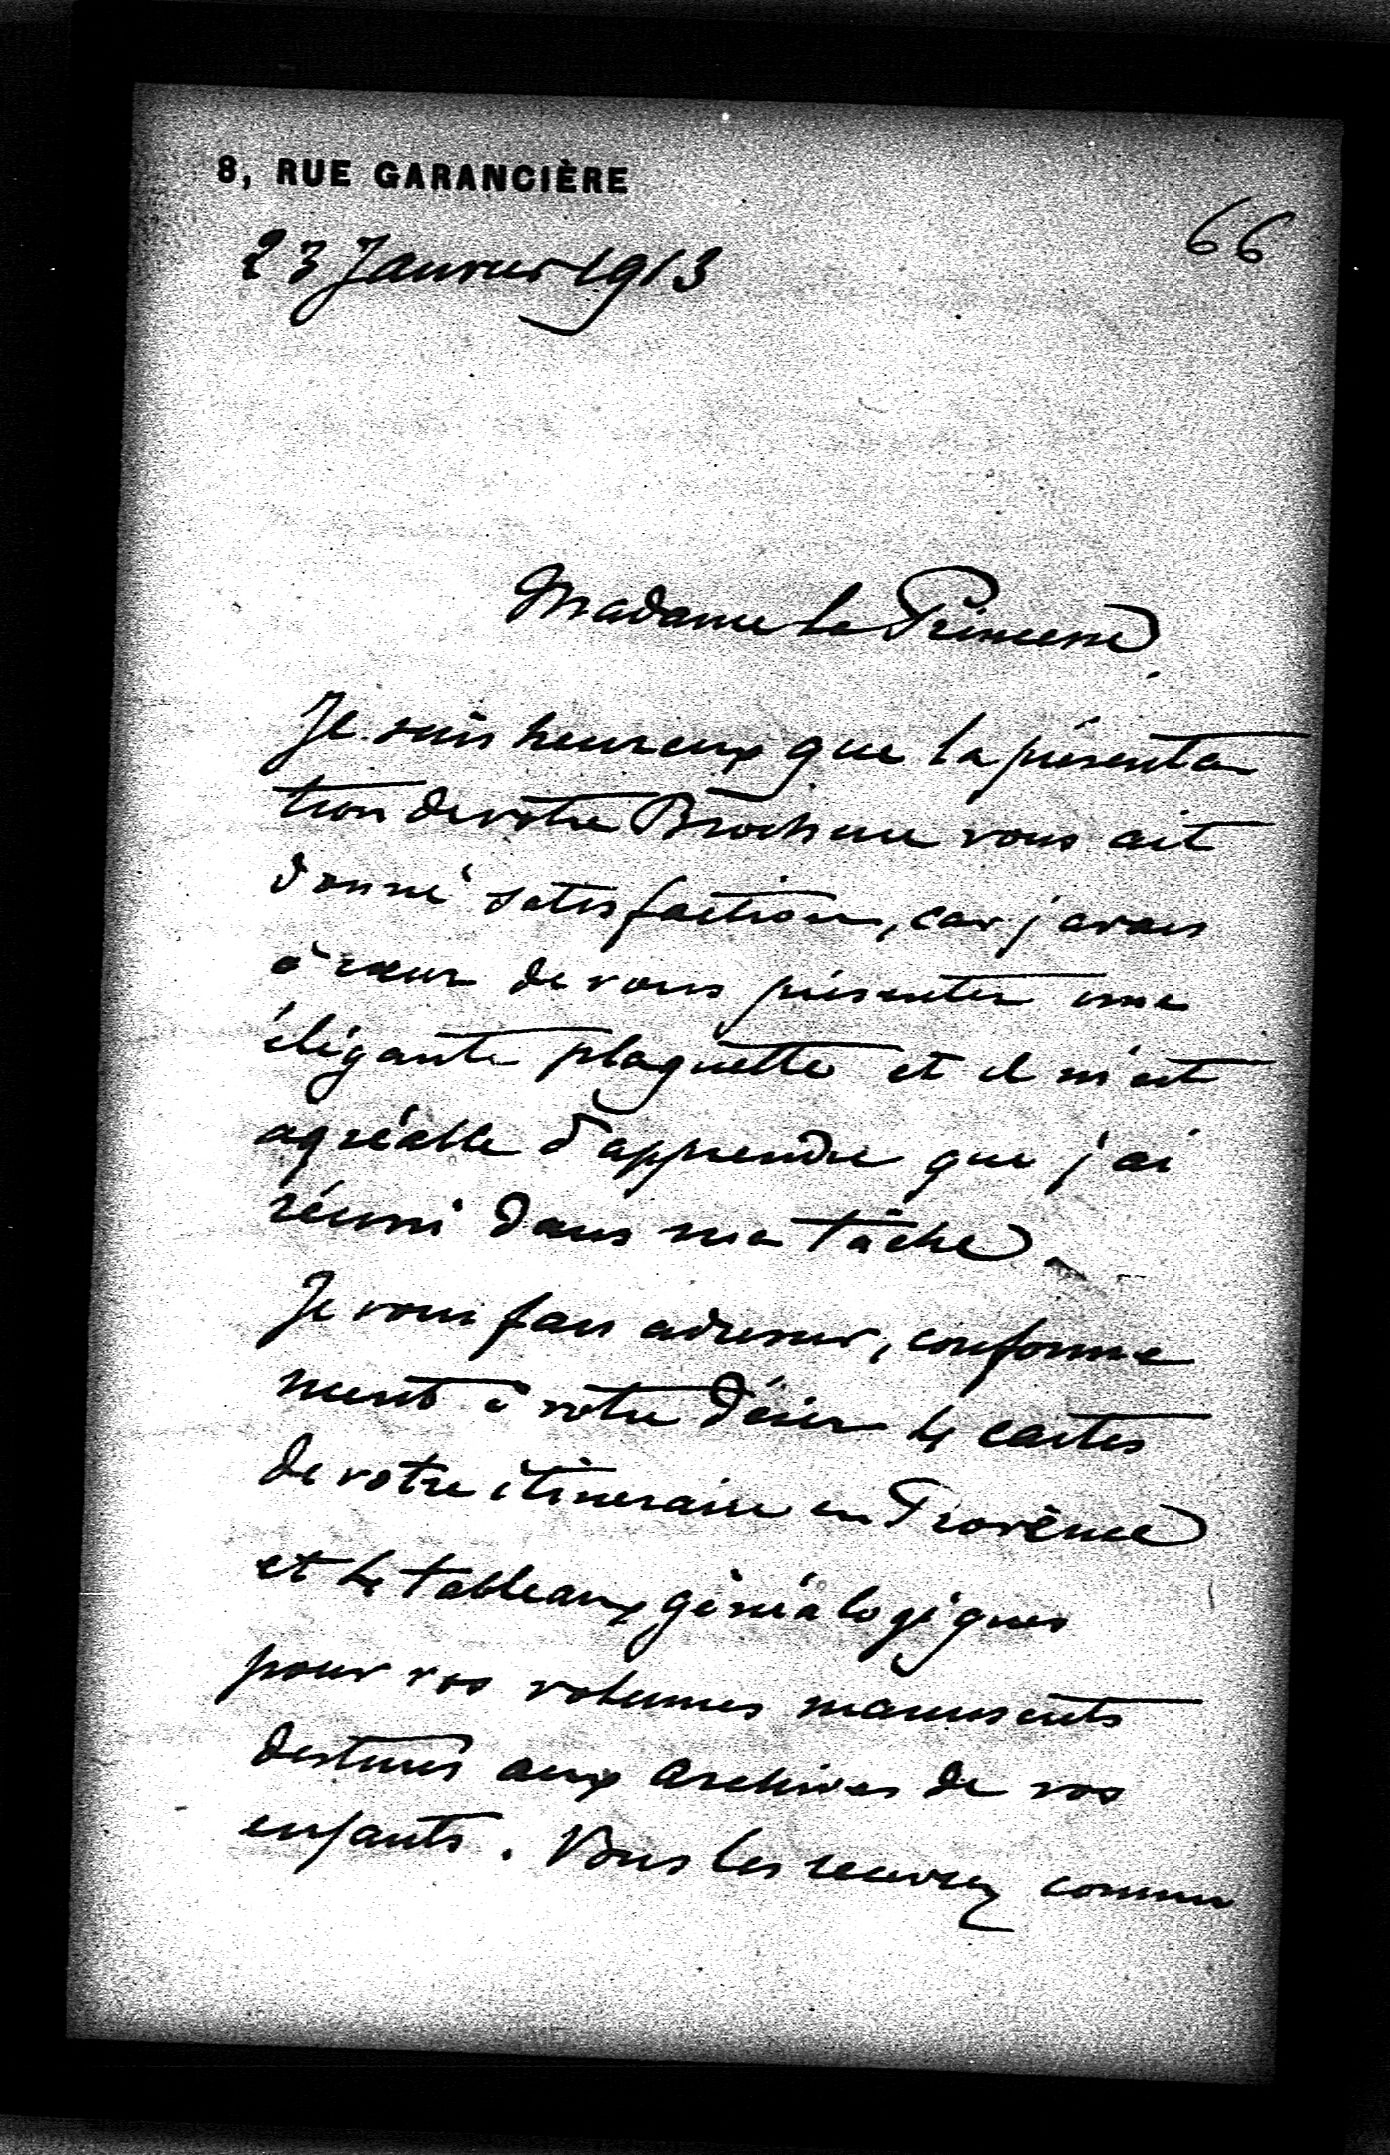 8, RUE GARANCIÈRE
66
23 Janvier 1913
Madame la Princesse.
Je suis heureux que la présenta
tion de votre Brochure vous ait
donné satisfaction, car j'avais
à cœur de vous présenter une
élégante plaquette et il m'est
agréable d'apprendre que j'ai
réussi dans ma tâche.
Je vous fais adresser, conforme
ment à votre désir 4 cartes
de votre itineraire en Provence
et 4 tableaux généalogiques
pour vos volumes manuscrits
destinés aux archives de vos
enfants. Vous les recevrez comme